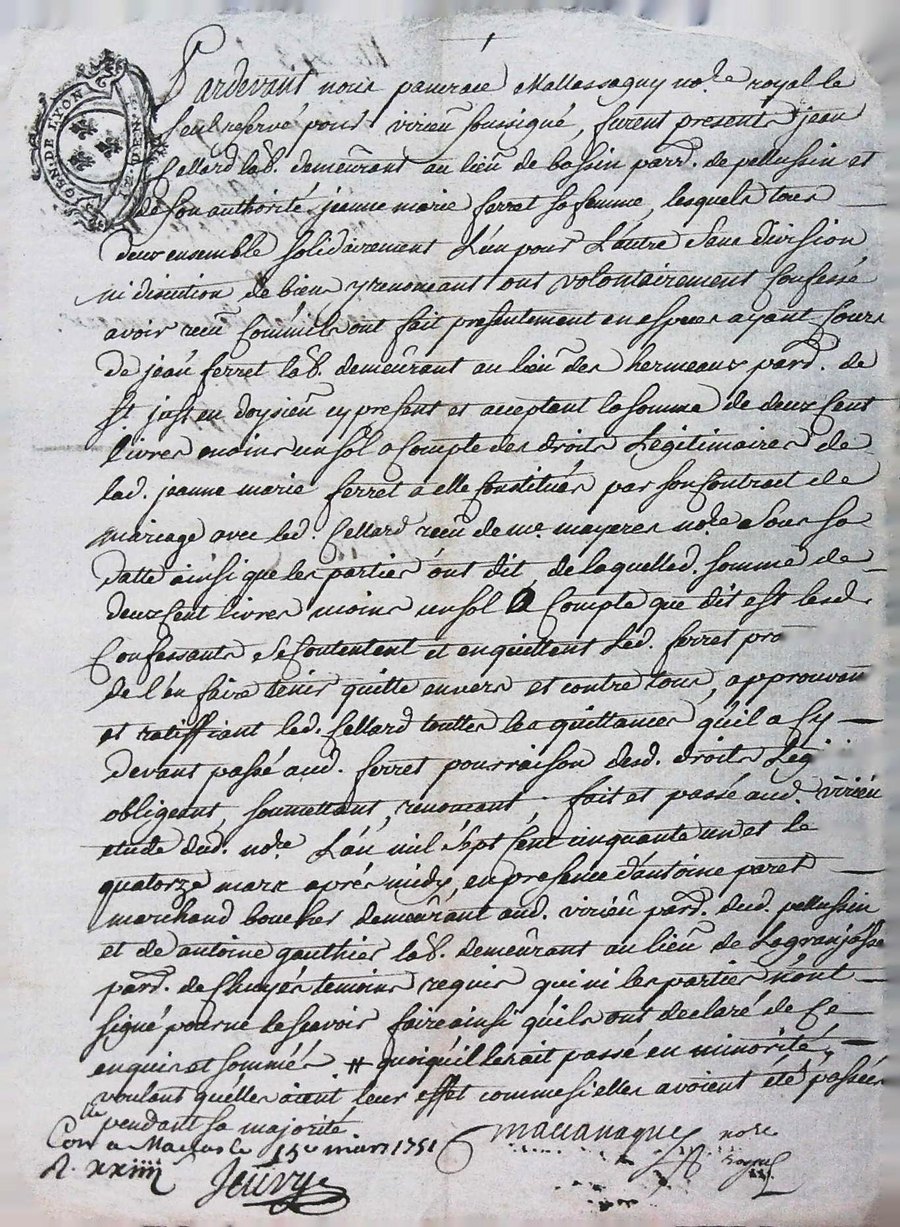 GEN. DE LYON
Pardevant nous pancrace Mallassagny no.re royal le
seul reservé pour virieu soussigné, furent presents jean
Cellard lab. demeurant au lieu de bassin parr. de pellussin et
de son authorité jeanne marie ferret sa femme, lesquels tous
deux ensemble solidairement L'un pour L'autre Sans division
ni discution de bien y renonceant ont volontairement Confessé
avoir receu Comm'ils ont fait presentement en especes ayant Cours
de jean ferret lab. demeurant au lieu des hermeaux parr. de
St. just en doysieu cy present et acceptant la somme de deux Cent
livres moins un sol a Compte des droits Legitimaires de
lad. jeanne marie ferret a elle Constitués par son Contract de
mariage avec led. Cellard receu de me. mayeres no.re Sous sa
datte ainsi que les parties ont dit, de laquelled. somme de
deux Cent livres moins un sol a Compte que dit est lesd.
Confessants Se Contentent et en quittent Led. ferret pro
de l'en faire tenir quitte envers et contre tous, approuvan
et ratiffiant led. Cellard touttes les quittances qu'il a Cy
devant passé aud. ferret pour raison desd. droits Legi
obligeant, soumettant, renonceant. fait et passé aud. virieu
etude dud. no.re L'an mil Sept Cent cinquante un et le
quatorze mars aprés midy, en presence d'antoine paret
marchand boucher demeurant aud. virieu parr. dud. pellussin
et de antoine gauthier lab. demeurant au lieu de Lagranjasse
parr. de Chuyer temoins requis qui ni les parties n'ont
signé pour ne le scavoir faire ainsi qu'ils ont declaré de Ce
enquis et sommés # quoiqu'il les ait passé en minorité,
voulant qu'elles aient leur effet comme si elles avoient eté passées
pendant sa majorité
Con.lle a Maclas le 15e mars 1751
R. xxiiii
Jeuvy
no.re
royal